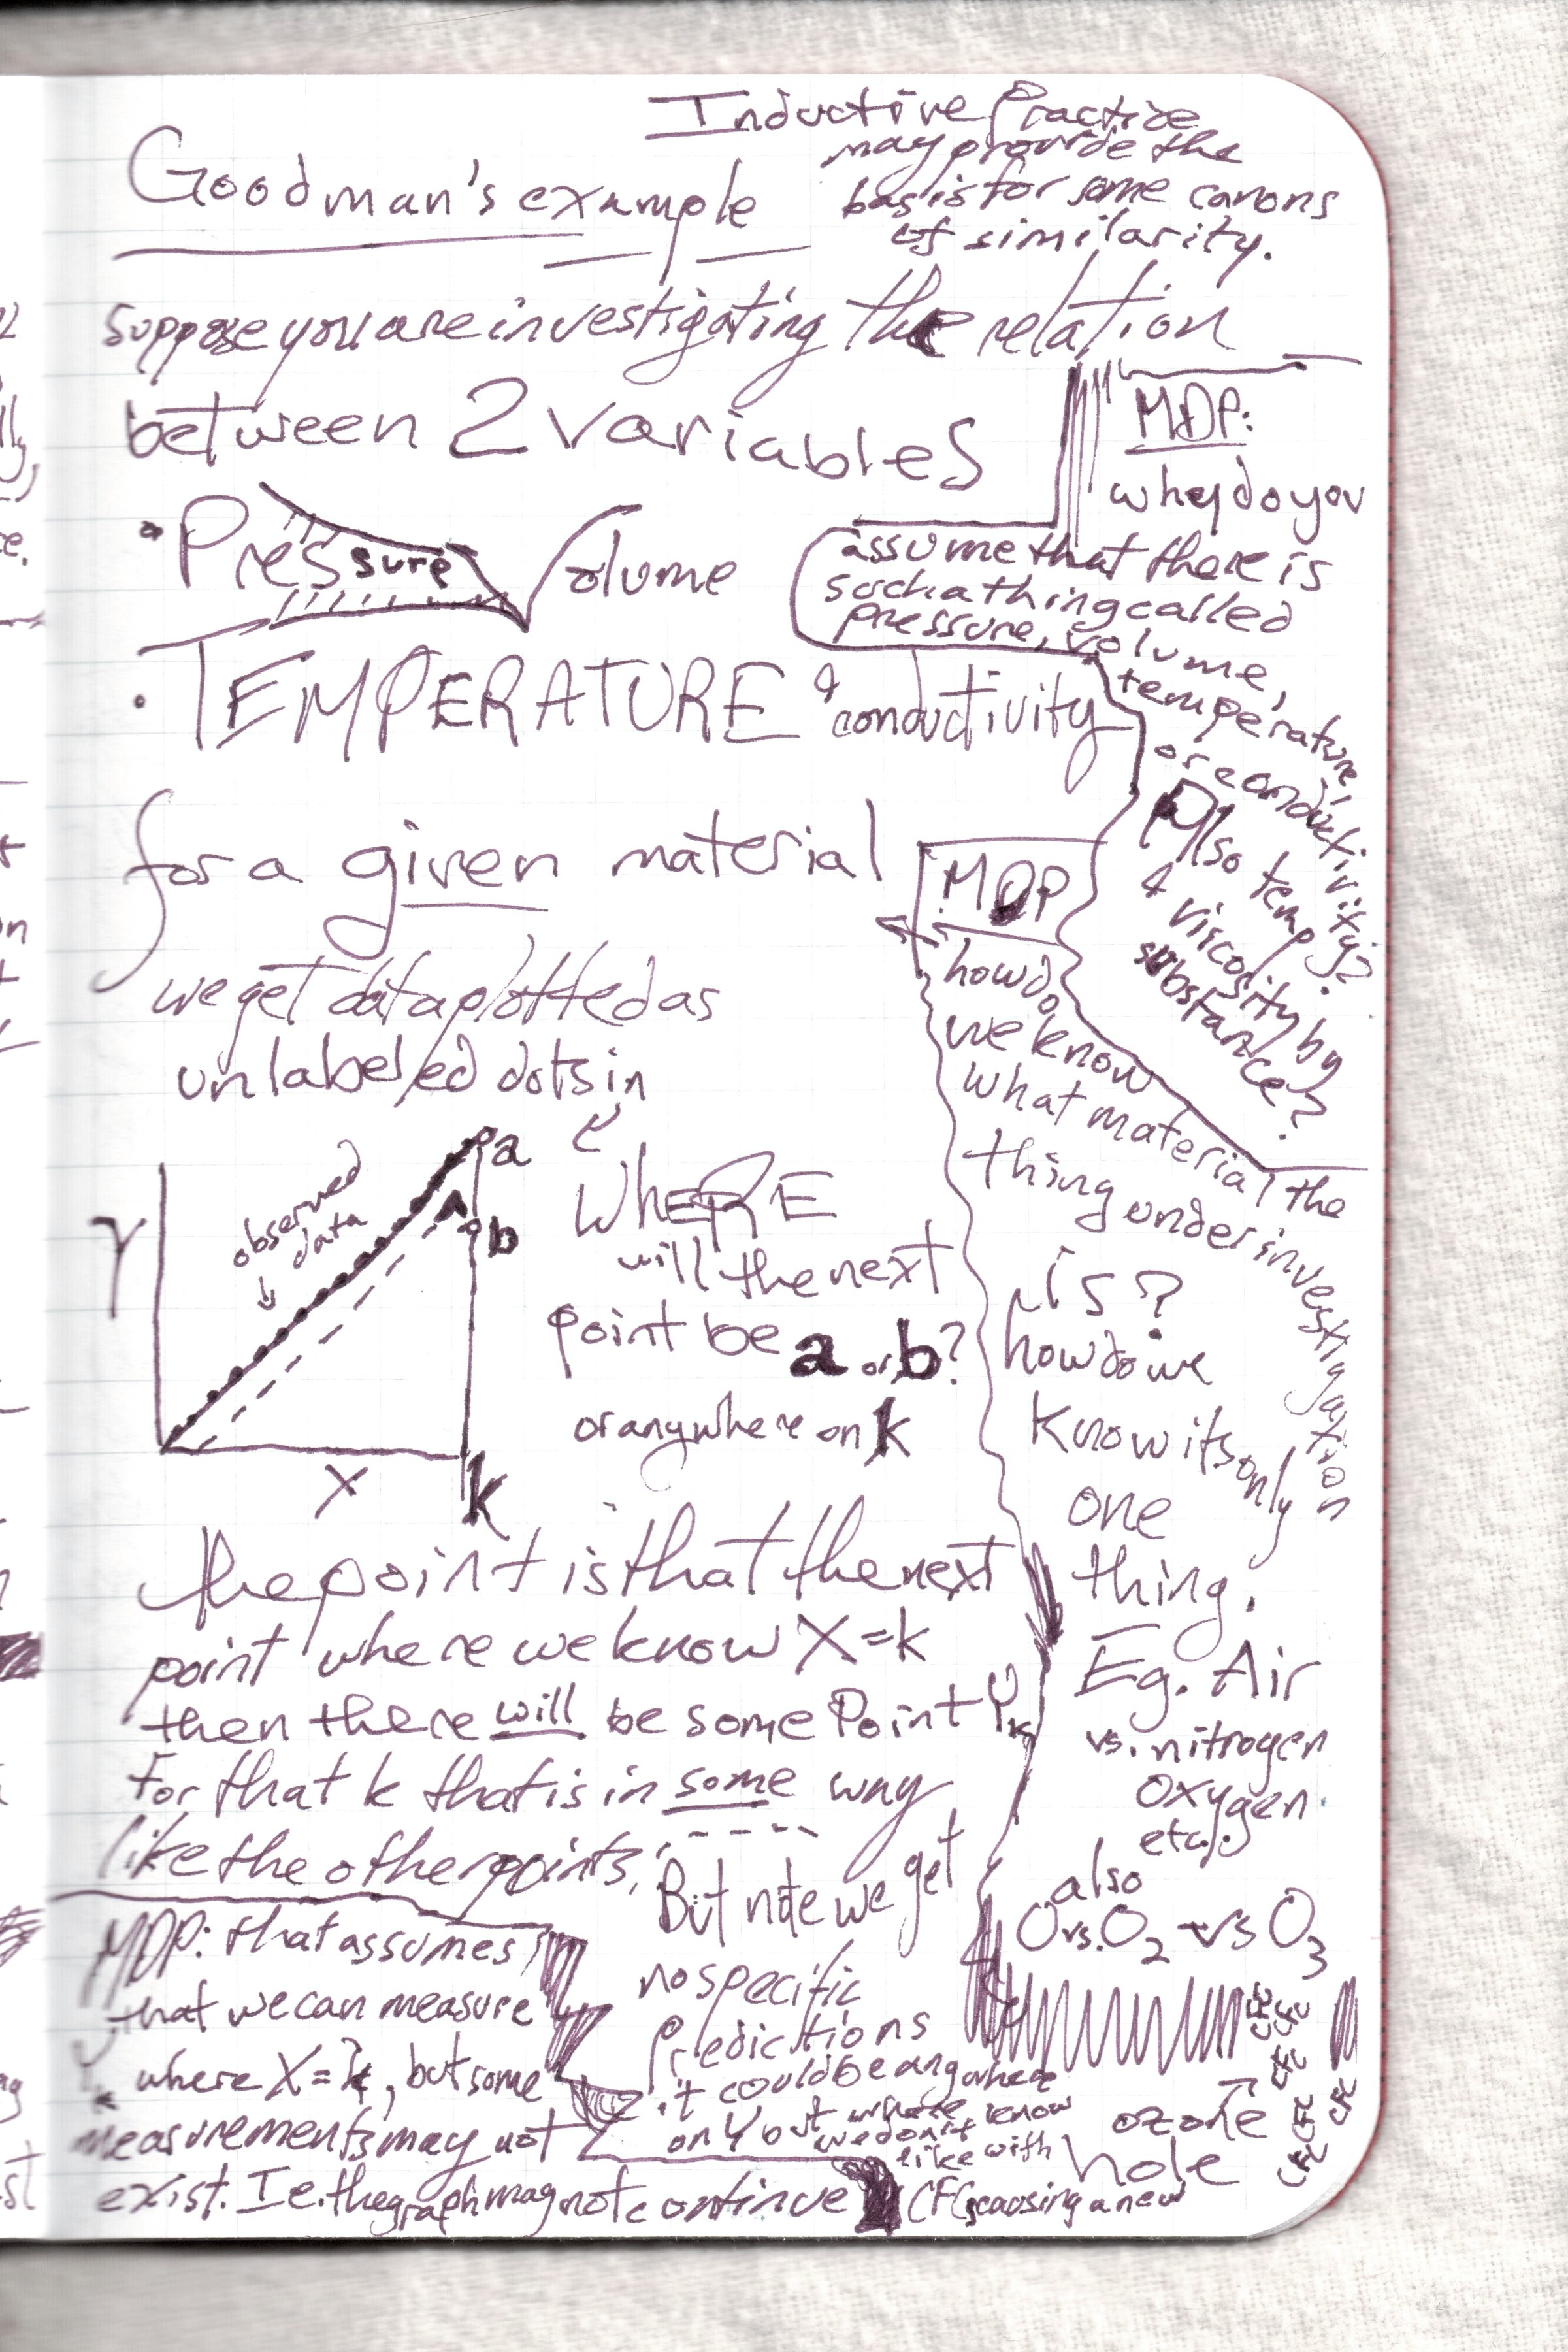 Inductive Practice
may provide the
basis for some canons
of similarity.
Goodman's example
Suppose you are investigating the relation
between 2 variables
• Pressure Volume
• TEMPERATURE & conductivity
for a given material
we get data plotted as
unlabeled dots in
MDP:
why do you
assume that there is
such a thing called
pressure, volume,
temperature,
or conductivity?
Also temp.
& viscosity by
substance?
MDP
how do
we know
what material the
thing under investigation
is?
how do we
know its only
one
thing.
Eg. Air
vs. nitrogen
oxygen
etc.
also
O vs. O2 vs O3
a
b
observed
data
Y
X
k
WHERE
will the next
point be a or b?
or anywhere on k
the point is that the next
point where we know X=k
then there will be some Point Yk
For that k that is in some way
like the other points,
But note we get
no specific
predictions
it could be anywhere
on Y but where
we don't know
like with
CFCs causing a new
ozone
hole
CFC CFC
CFC CFC
CFC CFC
CFC
MDP: that assumes
that we can measure
Yk where X=k, but some
measurements may not
exist. I.e. the graph may not continue